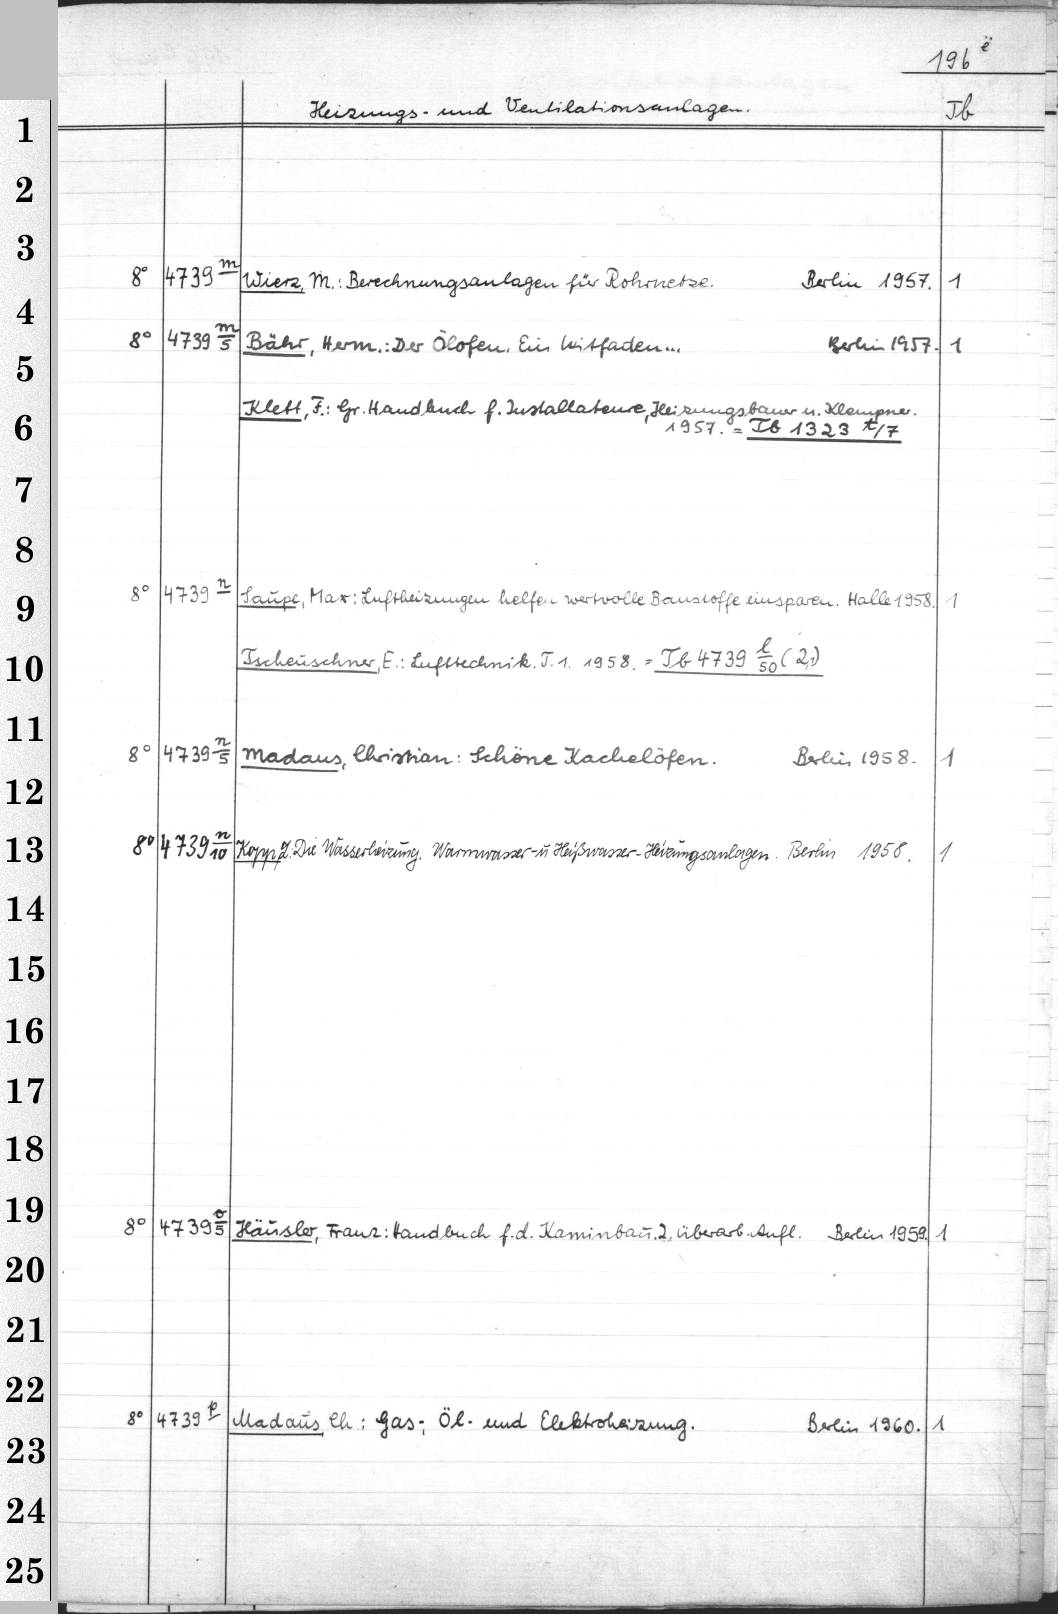 196 ë
Heizungs- und Ventilationsanlagen. Tb
1
2
3
8° 4739 m Wierz, M.: Berechnungsanlagen für Rohrnetze. Berlin 1957. 1
4
8° 4739 m/5 Bähr, Herm.: Der Ölofen. Ein Leitfaden... Berlin 1957. 1
5
Klett, F.: Gr. Handbuch f. Installateure, Heizungsbauer u. Klempner.
6 1957. = Tb 1323 t/7
7
8
8° 4739 n Saupe, Max: Luftheizungen helfen wertvolle Baustoffe einsparen. Halle 1958. 1
9
10 Tscheuschner, E.: Lufttechnik. T. 1. 1958. = Tb 4739 l/50 (2,1)
11
8° 4739 n/5 Madaus, Christian: Schöne Kachelöfen. Berlin 1958. 1
12
13 8° 4739 n/10 Kopp, L: Die Wasserheizung. Warmwasser- u Heißwasser-Heizungsanlagen. Berlin 1958. 1
14
15
16
17
18
19
8° 4739 o/5 Häusler, Franz: Handbuch f. d. Kaminbau. 2, überarb. Aufl. Berlin 1959. 1
20
21
22
8° 4739 p Madaus, Ch.: Gas-, Öl- und Elektroheizung. Berlin 1960. 1
23
24
25